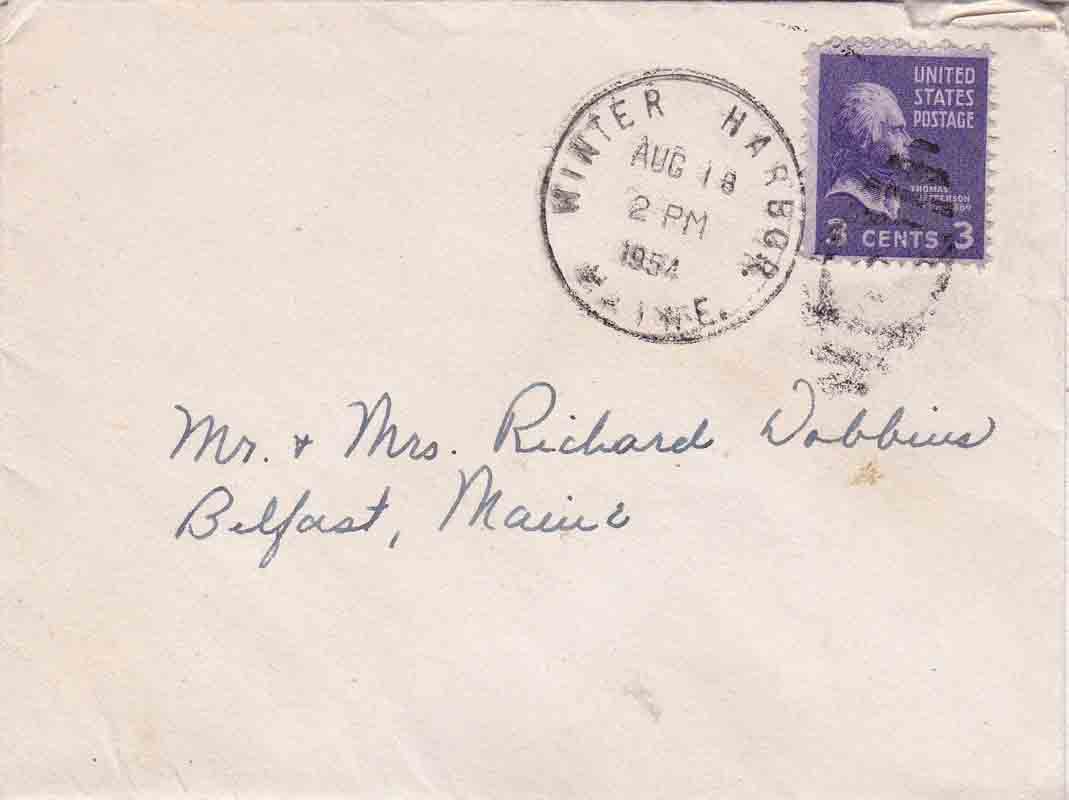 WINTER HARBOR
AUG 18
2 PM
1954
MAINE.
UNITED
STATES
POSTAGE
THOMAS
JEFFERSON
3 CENTS 3
Mr. + Mrs. Richard Dobbins
Belfast, Maine